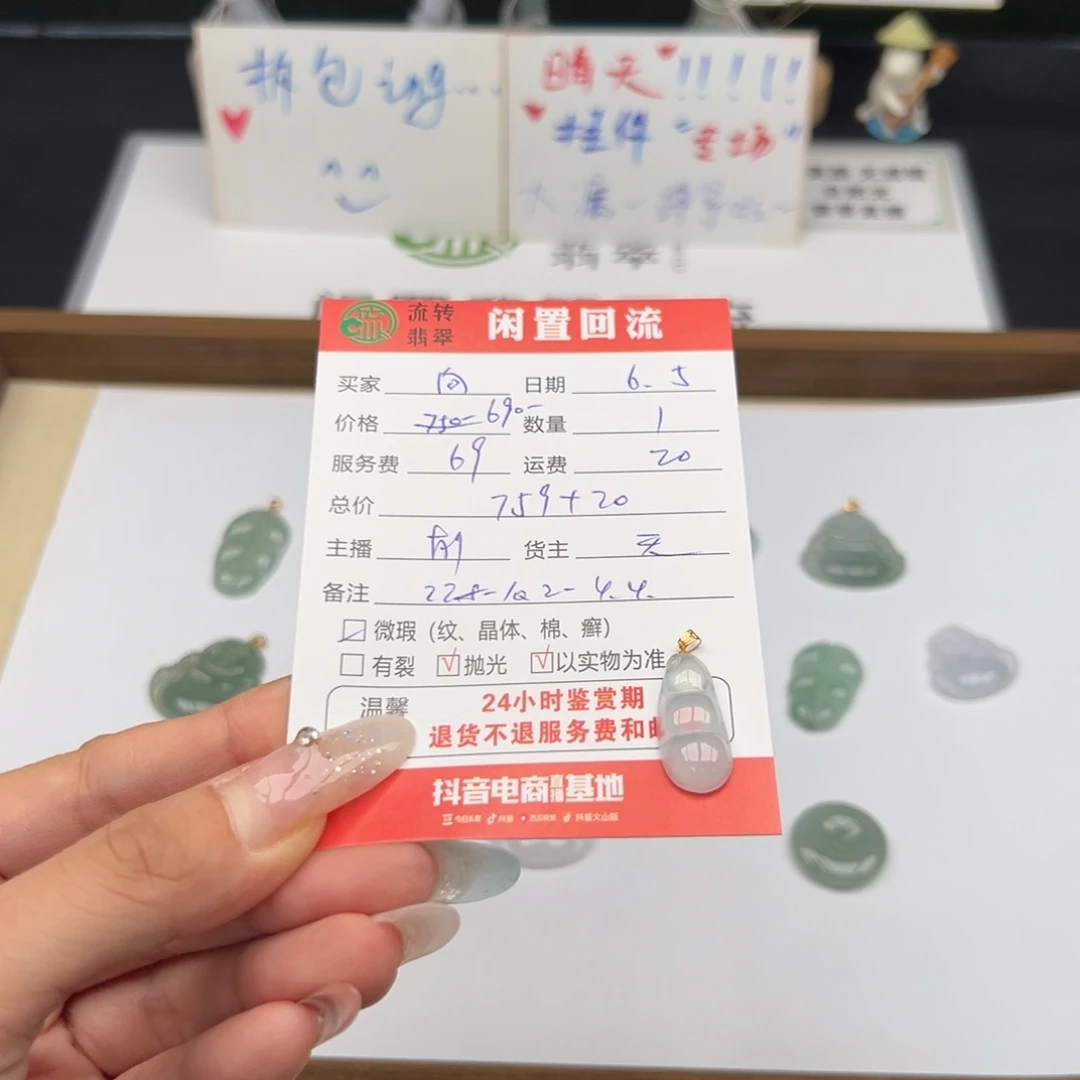 拆包
晴天!!!!!
挂件"专场"
翡翠
流转
翡翠
闲置回流
买家 向 日期 6.5
价格 750- 690- 数量 1
服务费 69 运费 20
总价 759+20
主播 前 货主 天
备注
微瑕（纹、晶体、棉、癣）
有裂 √抛光 √以实物为准
温馨
24小时鉴赏期
退货不退服务费和邮
抖音电商直播基地
今日头条 抖音 西瓜视频 抖音火山版